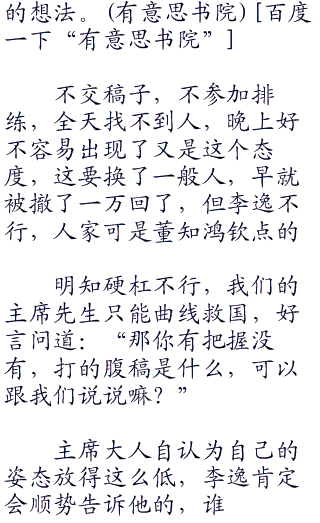 的想法。(有意思书院)[百度
一下“有意思书院”]
不交稿子，不参加排
练，全天找不到人，晚上好
不容易出现了又是这个态
度，这要换了一般人，早就
被撤了一万回了，但李逸不
行，人家可是董知鸿钦点的
明知硬杠不行，我们的
主席先生只能曲线救国，好
言问道：“那你有把握没
有，打的腹稿是什么，可以
跟我们说说嘛？”
主席大人自认为自己的
姿态放得这么低，李逸肯定
会顺势告诉他的，谁